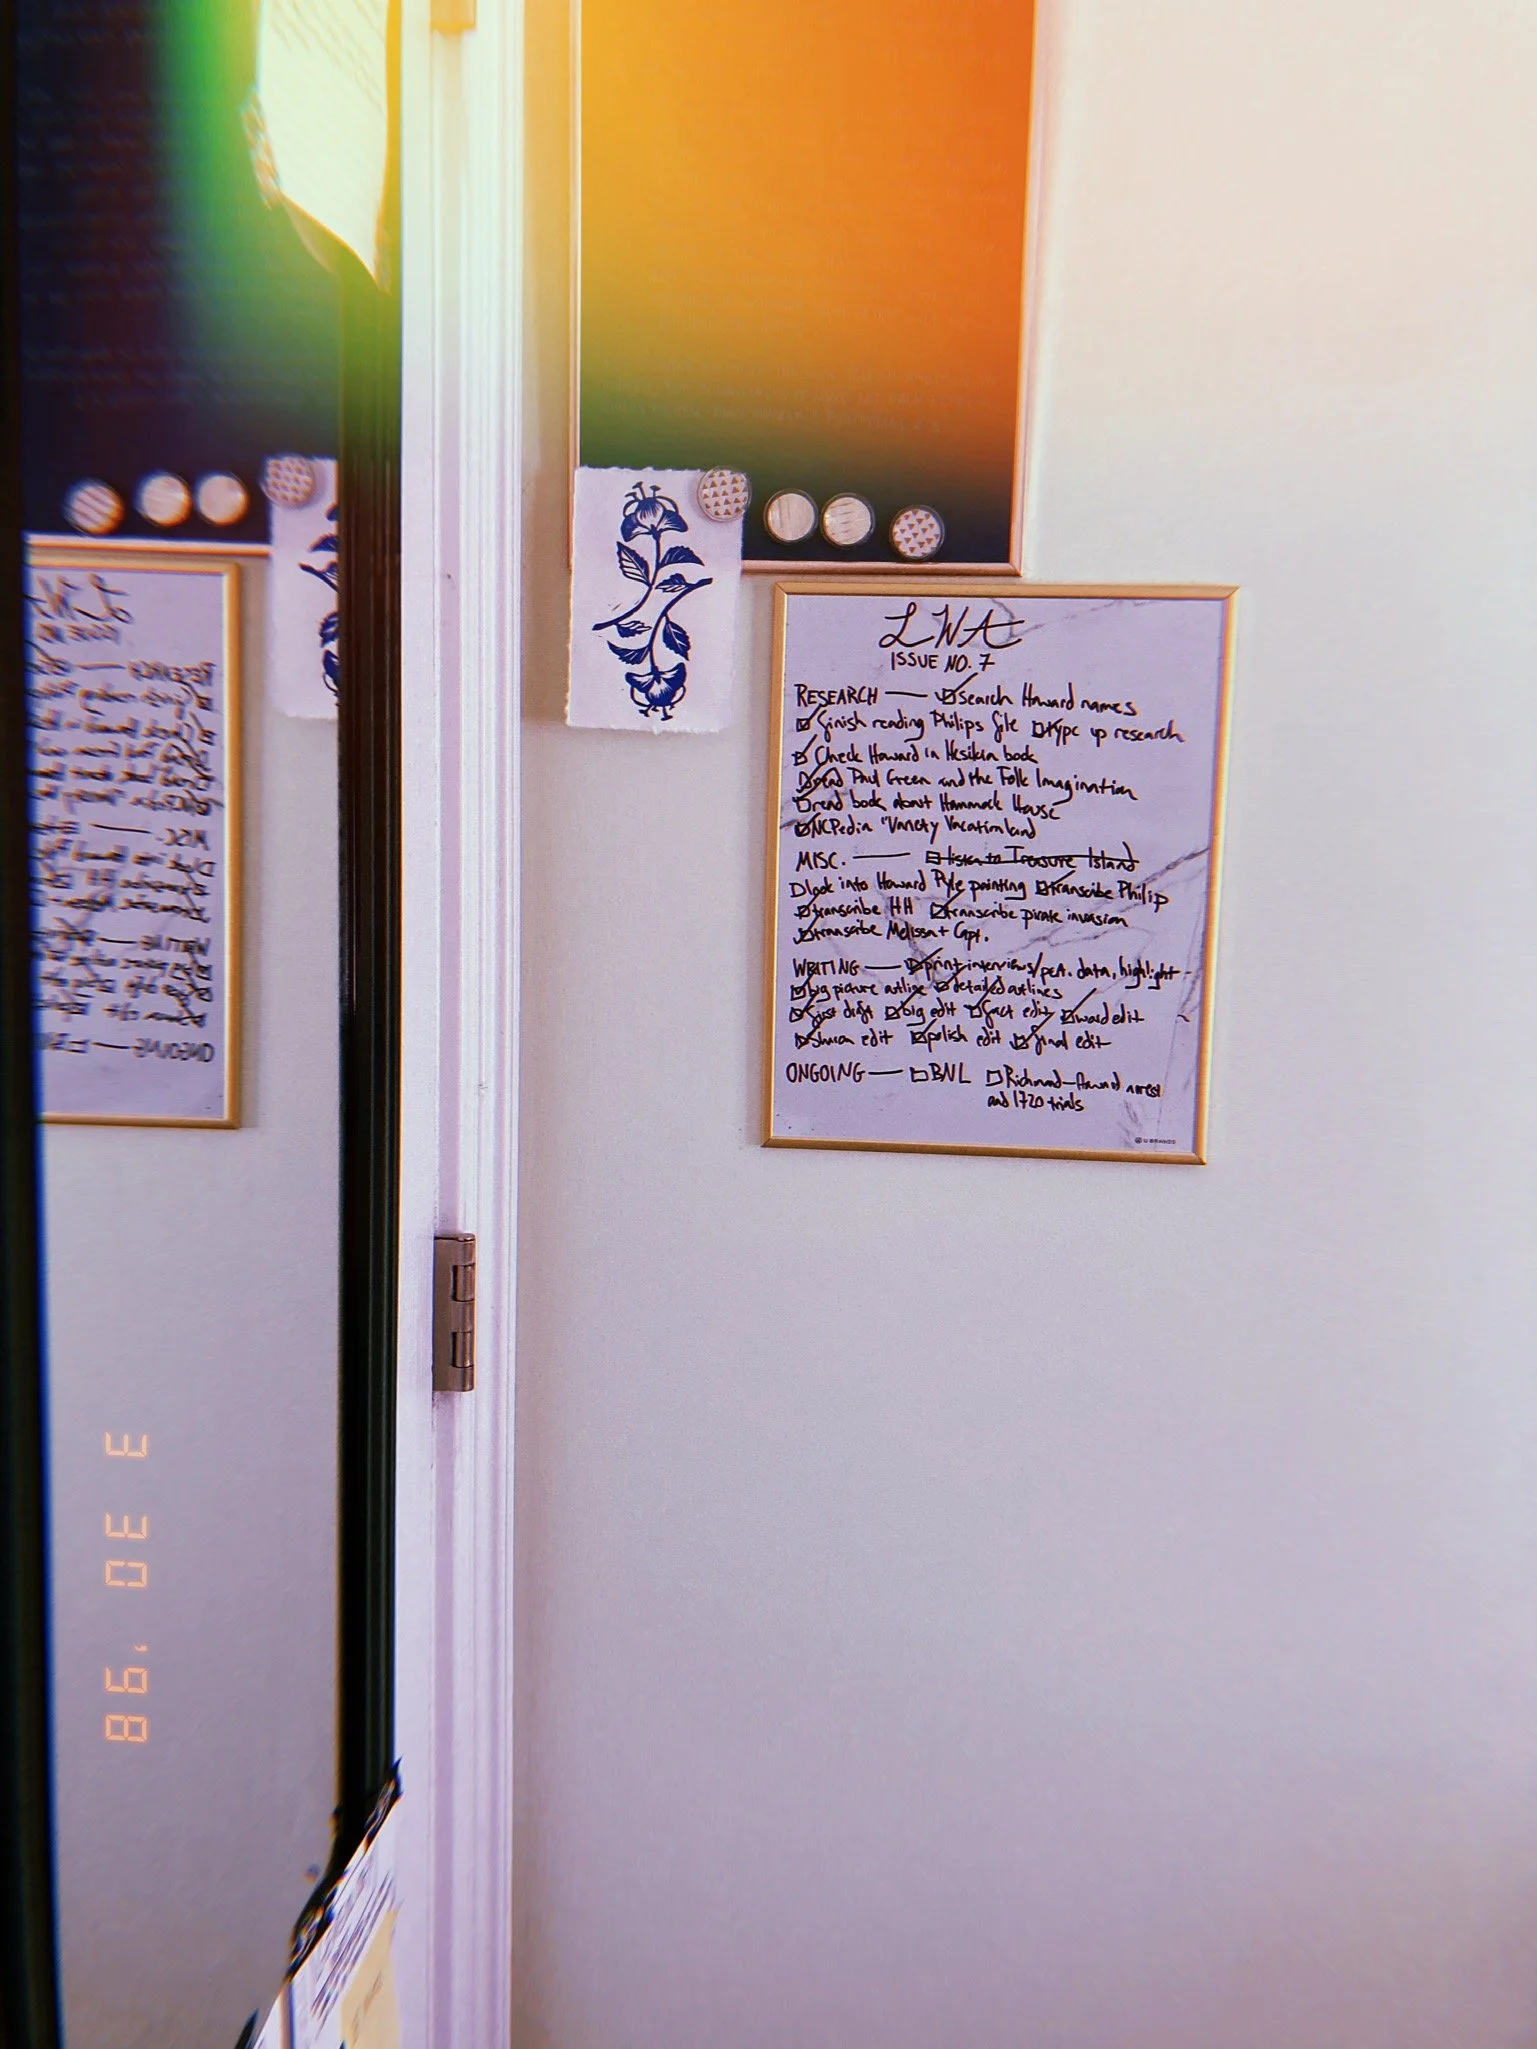 LWA
ISSUE NO. 7
RESEARCH — search Howard names
finish reading Philips file type up research
Check Howard in book
read Paul Green and the Folk Imagination
read book about Hammock House
NCPedia "Variety Vacationland
MISC. — listen to Treasure Island
look into Howard Pyle painting transcribe Philip
transcribe HH transcribe pirate invasion
transcribe Melissa + Capt.
WRITING — print interviews/ data, highlight
big picture outline detailed outlines
first draft big edit fact edit word edit
edit polish edit final edit
ONGOING — BNL Richmond — Howard arrest
and 1720 trials
U BRANDS
3 30 '98